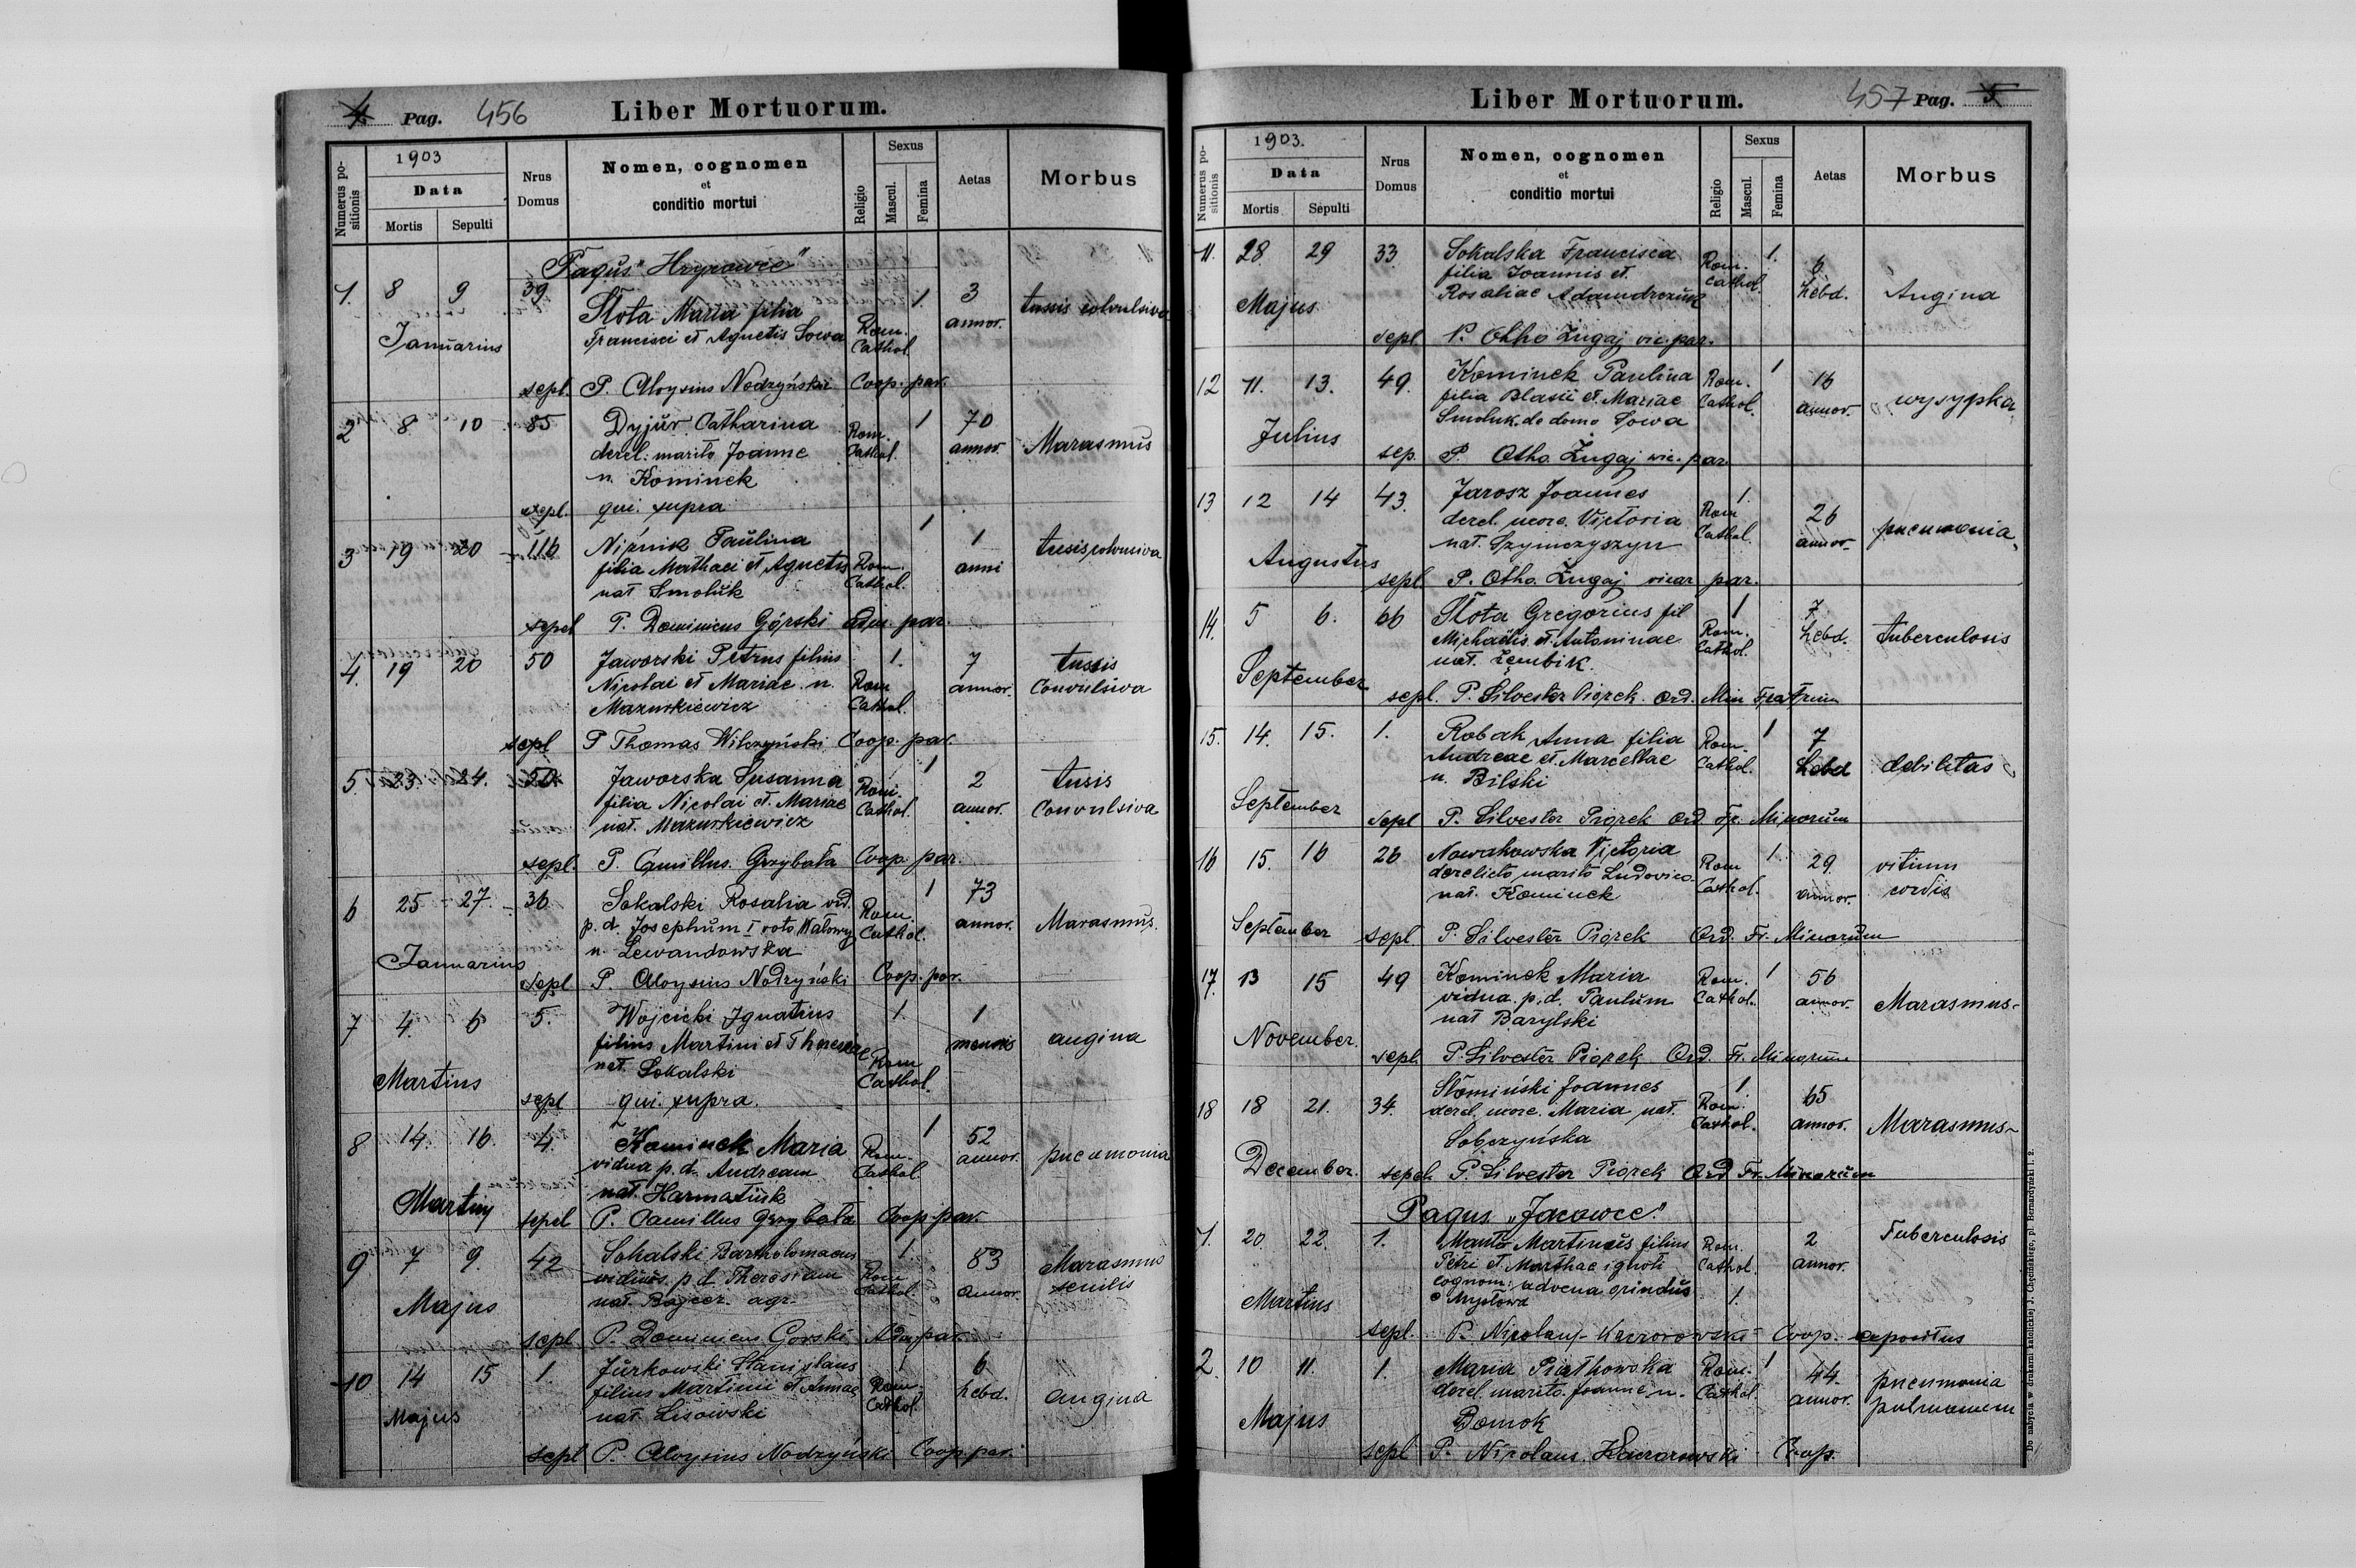 4 Pag. 456 Liber Mortuorum.
Numerus positionis
1903
Data
Mortis Sepulti
Nrus Domus
Nomen, cognomen
et
conditio mortui
Religio
Sexus
Mascul. Femina
Aetas
Morbus
Pagus "Hryrawce"
1. 8 9 39 Słota Maria filia 1. 3 annor. tussis colvulsiva
Januarius Francisci et Agnetis Sowa Rom. Cathol.
sepl. P. Aloysius Nodzyński Coop. par.
2 8 10 85 Dyjur Catharina Rom. Cathol. 1 70 annor. Marasmus
derel: marito Joanne
n. Kominek
sepl. qui supra
3 19 20 116 Niznik Paulina 1 1 anni tusis colvusiva
filia Mathaei et Agnetis Rom. Cathol.
nat Smoluk
sepel P. Dominicus Górski Adm. par.
4. 19 20 50 Jaworski Petrus filius 1. 7 annor. tussis Convulsiva
Nicolai et Mariae n. Rom Cathol.
Mazurkiewicz
sepl P Thomas Wilczyński Coop. par.
5 23 24. 50 Jaworska Susanna 1 2 annor. tusis Convulsiva
filia Nicolai et Mariae Rom. Cathol.
nat. Mazurkiewicz
sepl. P. Camillus Grzybała Coop. par.
6 25 27. 36 Sokalski Rosalia vid. 1 73 annor. Marasmus.
p. d. Josephum I voto Watowy Rom. Cathol.
n. Lewandowska
Januarius
sepl P. Aloysius Nodzyński Coop. par.
7 4. 6 5. Wojcicki Ignatius 1. 1 mensis angina
filius Martini et Theresiae Rom Cathol.
nat. Sokalski
Martius
sepl qui supra.
8 14. 16 4. Kominek Maria 1 52 annor. pneumonia
vidua p. d. Andream Rom. Cathol.
nat. Harmatiuk
Martii
sepel P. Camillus Grzybała Coop. par.
9 7 9. 42 Sokalski Bartholomaeus 1. 83 annor. Marasmus senilis
viduus p. d. Theresiam Rom Cathol.
nat. agr.
Majus
sepl P. Dominicus Gorski Adm par.
10 14 15 1. Jurkowski Stanislaus 1 6 hebd. angina
filius Martini et Annae Rom Cathol.
nat Lisowski
Majus
sepl P. Aloysius Nodzyński Coop. par.
Liber Mortuorum. 457 Pag. 5
Numerus positionis
1903.
Data
Mortis Sepulti
Nrus Domus
Nomen, cognomen
et
conditio mortui
Religio
Sexus
Mascul. Femina
Aetas
Morbus
11. 28 29 33. Sokalska Francisca Rom. Cathol. 1. 6 hebd. Angina
filia Joannis et
Rosaliae Adamdrzuk
Majus
sepl P. Otho Zugaj vic. par.
12 11. 13. 49. Kominek Paulina Rom. Cathol. 1 16 annor. wysypka
filia Blasii et Mariae
Smoluk de domo Sowa
Julius
sep. P. Otho Zugaj vic. par.
13 12 14 43. Jarosz Joannes Rom Cathol. 1. 26 annor. pneumonia
derel. uxore Victoria
nat. Szymczyszyn
Augustus
sepl P. Otho Zugaj vicar par.
14. 5 6. 66 Słota Gregorius fil 1 7. hebd. tuberculosis
Michaelis et Antoninae Rom. Cathol.
nat. Zembik.
September
sepl. P. Silvester Piorek Ord. Min Fratrum
15. 14. 15. 1. Robak Anna filia Rom. Cathol. 1 7 hebd debilitas
Andreae et Marcellae
n. Bilski
September
sepl P. Silvester Piorek Ord Fr. Minorum
16 15. 16 26 Nowakowska Victoria Rom Cathol. 1. 29. annor. vitium cordis
derelicto marito Ludovico
nat. Kominek
September
sepl P. Silvester Piorek Ord. Fr. Minorum
17. 13 15 49 Kominek Maria Rom. Cathol. 1 56 annor. Marasmus
vidua p. d. Paulum
nat Barylski
November.
sepl. P. Silvester Piorek Ord. Fr. Minorum
18 18 21. 34. Słomiński Joannes Rom. Cathol. 1 65 annor. Marasmus
derel. uxore Maria nat.
Sobczyńska
December.
sepel. P. Silvester Piorek Ord Fr. Minorum
Pagus „Jacowce"
1. 20. 22. 1. Martinus filius Rom. Cathol. 1. 2 annor. Tuberculosis
Petri et Marthae ignoti
cognom: advena
Martius
sepl. P. Nicolaus Coop. expositus
2. 10 11. 1. Maria Piątkowska Rom. Cathol. 1 44. annor. pneumonia pulmonum
derel. marito Joanne n.
Majus
sepl P. Nicolaus Kaczorowski Coop.
Do nabycia w drukarni katolickiej J. Chęcińskiego, pl. Bernardyński l. 2.